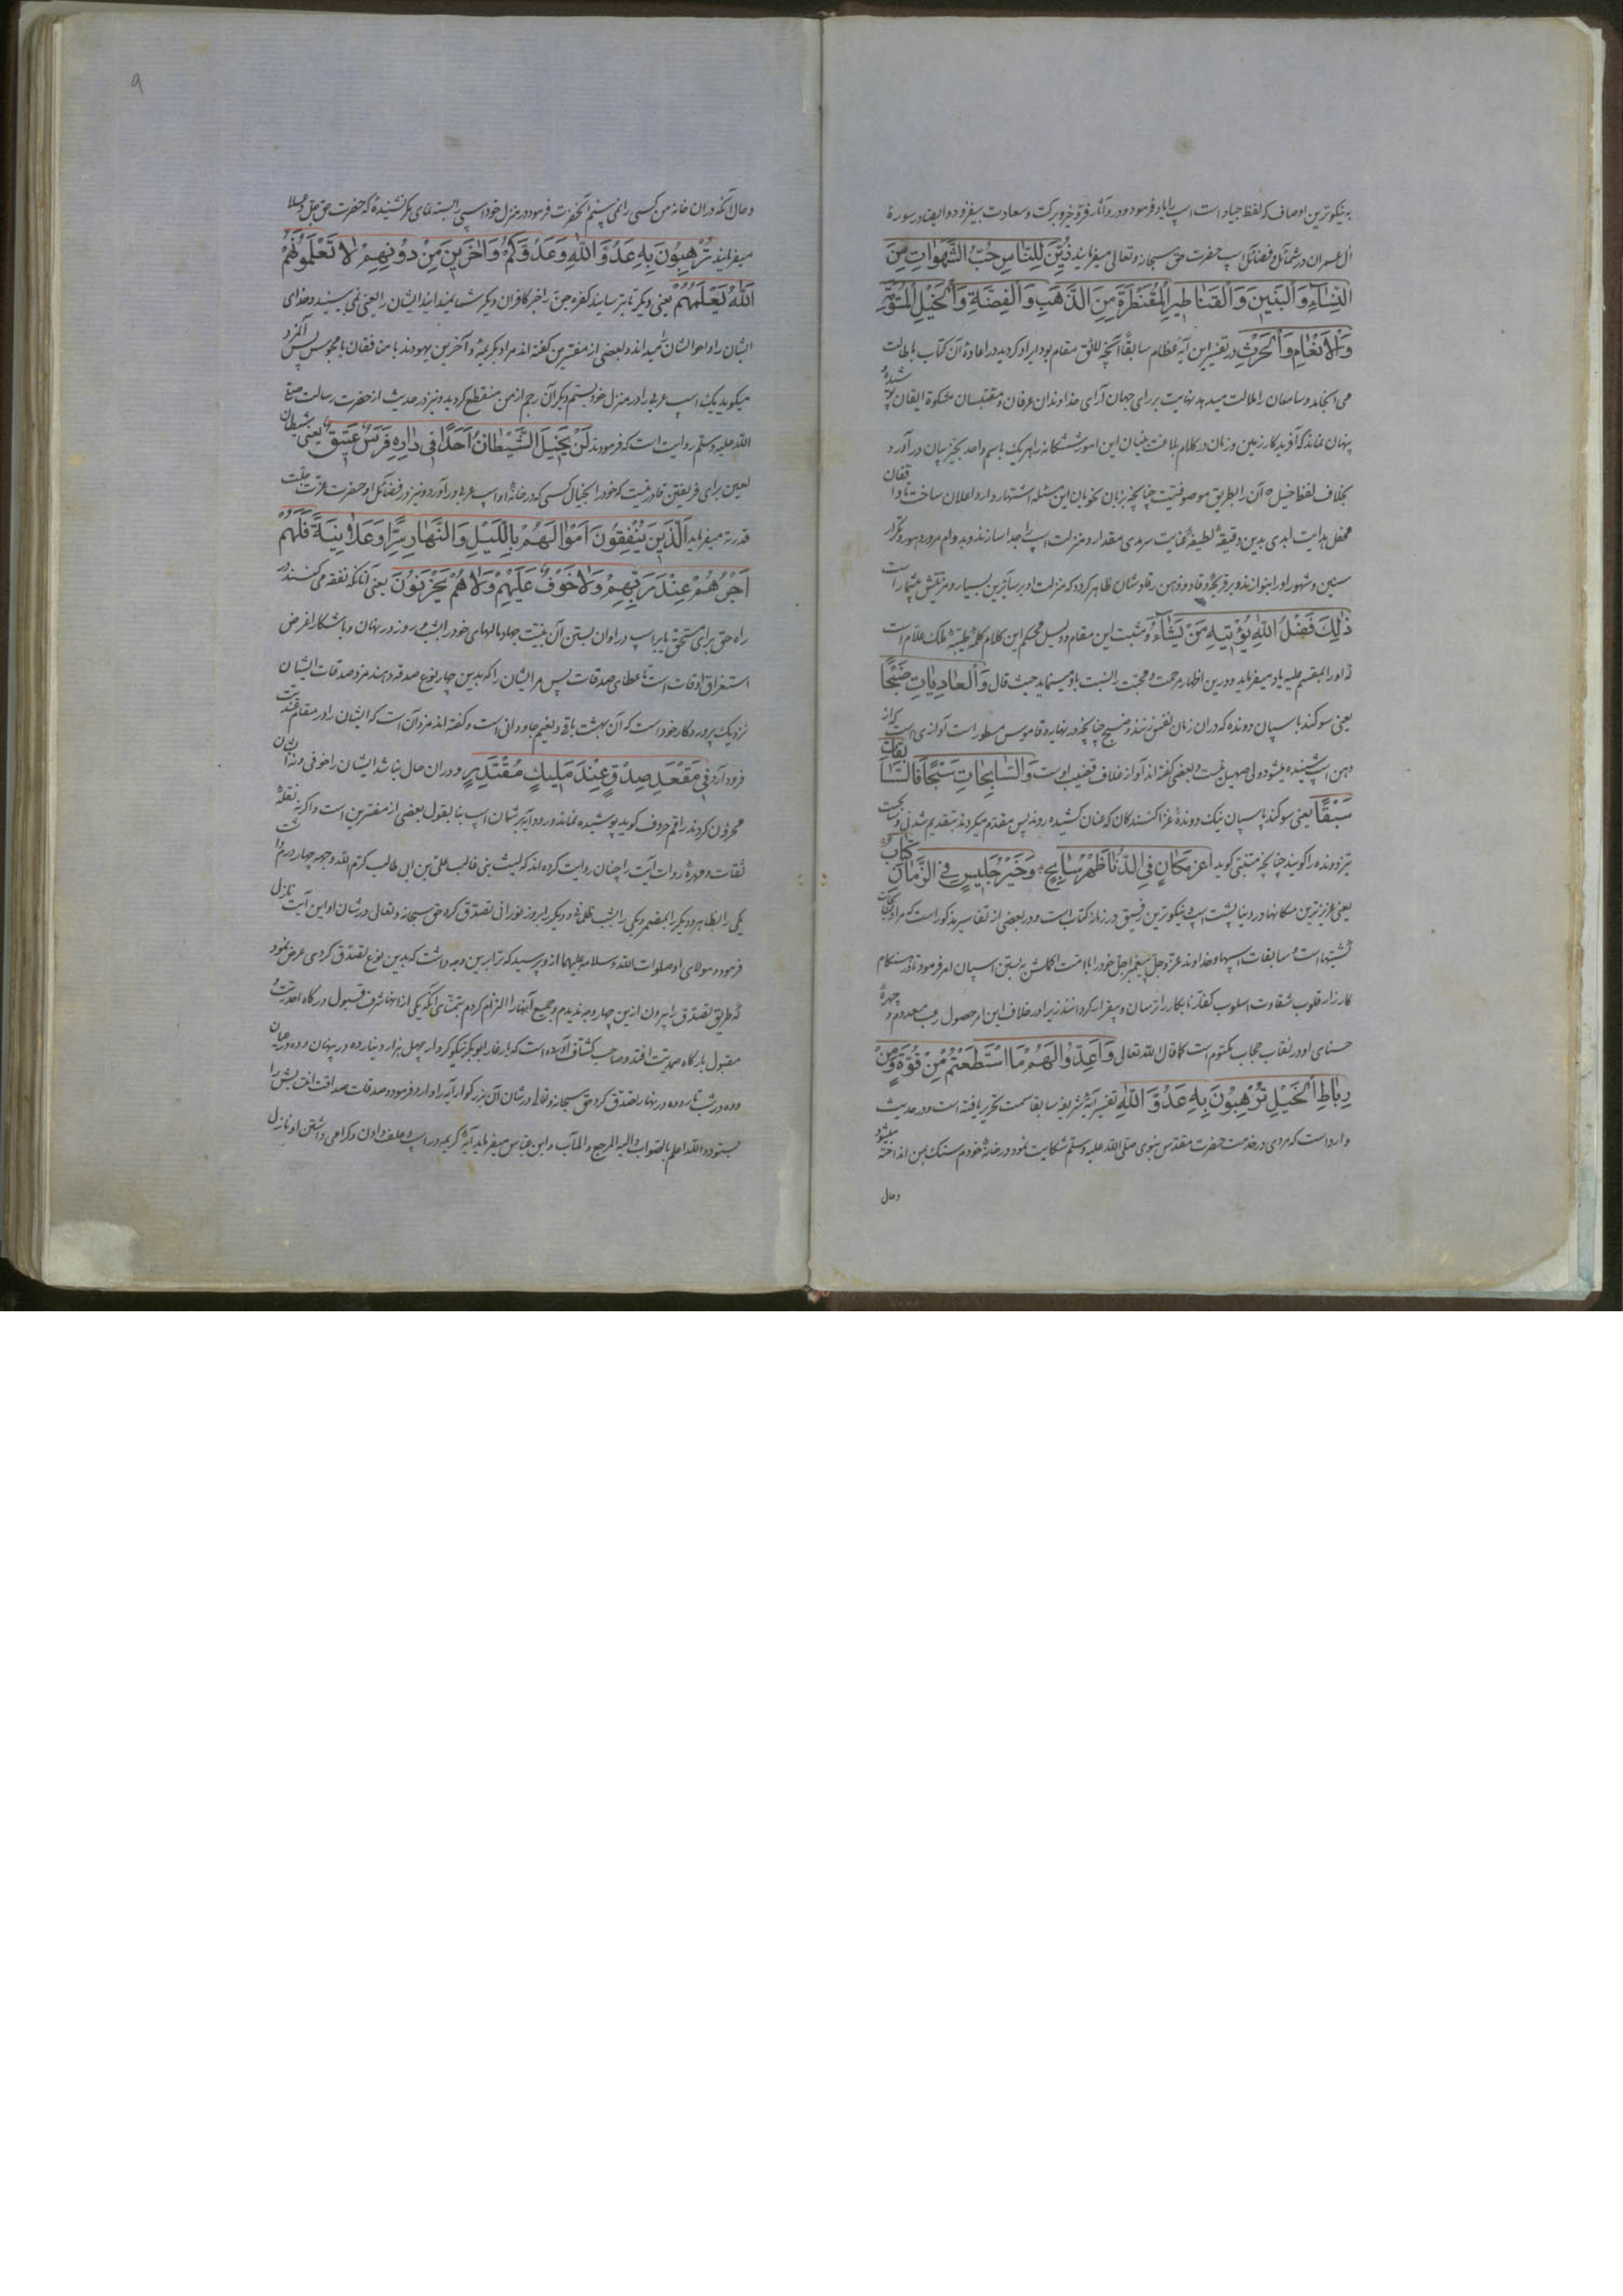 به نیکوترین اوصاف که لفظ جیاد است اسپ را یاد فرمود و در و آثار فره و خیر و برکت و سعادت بیفزود و ایضا در سورهٔ
آل عمران در شمائل و فضائل اسپ حضرت حق سبحانه و تعالی میفرماید زُیِّنَ لِلنَّاسِ حُبُّ الشَّهَوٰاتِ مِنَ
النِّسٰاءِ وَالْبَنِینَ وَالْقَنٰاطِیرِ الْمُقَنْطَرَةِ مِنَ الذَّهَبِ وَالْفِضَّةِ وَالْخَیْلِ الْمُسَوَّمَةِ
وَالْأَنْعٰامِ وَالْحَرْثِ در تفسیر این آیه عظام سابقًا آنچه لائق مقام بود ایراد کردید در اعادهٔ آن کتاب باطالت
می انجامد و سامعان را ملالت میدهد نهایت بر رای جهان آرای خداوندان عرفان و مقتبسان مشکوة ایقان پوشیده
پنهان نماند که آفریدکار زمین و زمان در کلام بلاغت بنیان این امور ششکانه را هر یک باسم واحد بحیز بیان در آورد
بخلاف لفظ خیل که آن را بطریق موصوفیت چنانچه بزبان نحویان این مسئله اشتهار دارد اعلان ساخت تا واقفان
محفل هدایت ابدی بدین دقیقهٔ لطیفهٔ عنایت سرمدی مقدار و منزلت اسپ را جدا سازند و بدوام مرور دهور و تکرار
سنین و شهور او را بنوازند و بر قریحهٔ وقاد و ذهن نقاد شان ظاهر کردد که منزلت او بر سائرین بسیار و مزیتش بیشمار است
ذٰلِكَ فَضْلُ اللّٰهِ یُؤْتِیهِ مَنْ یَشٰاءُ و مثبت این مقام و دلیل محکم این کلام کلمهٔ طیبهٔ ملک علام است
که او را بمقسم علیه یاد میفرماید و درین اظهار مرحمت و محبت را نسبت باو مینماید حیث قال وَالْعٰادِیٰاتِ ضَبْحًا
یعنی سوکند باسپان دونده که دران زمان نفس زنند و ضبح چنانچه در نهایه و قاموس مسطور است آوازی است که از
دهن اسپ شنیده میشود ولی صهیل نیست و بعضی کفته اند آواز غلاف قضیب اوست وَالسّٰابِحٰاتِ سَبْحًا فَالسّٰابِقٰاتِ
سَبْقًا یعنی سوکند باسپان نیک دوندهٔ غزا کنندکان که عنان کشیده روند پس مقدم میکردند بتقدیم شدنی و سابحت
تیز دونده را کویند چنانچه متنبی کوید اَعَزُّ مَكٰانٍ فِی الدُّنٰا ظَهْرُ سٰابِحٍ وَخَیْرُ جَلِیسٍ فِی الزَّمٰانِ كِتٰابُ
یعنی عزیزترین مکانها در دنیا پشت اسپ و نیکوترین رفیق در زمانه کتاب است و در بعضی از تفاسیر مذکور است که مراد سابحات
کشتیها است و سابقات اسپها و خداوند عز و جل پیغمبر اجل خود را با امت اکملش به بستن اسپان امر فرمود تا در هنکام
کارزار قلوب شقاوت اسلوب کفار نابکار را ترسان و بیقرار کردانند زیرا در خلاف این امر حصول رعب معدوم و چهرهٔ
حسنای او در نقاب حجاب مکتوم است کما قال الله تعالی وَاَعِدُّوا لَهُمْ مَا اسْتَطَعْتُمْ مِنْ قُوَّةٍ وَمِنْ
رِبٰاطِ الْخَیْلِ تُرْهِبُونَ بِهِ عَدُوَّ اللّٰهِ تفسیر آیهٔ شریفه سابقا سمت تحریر یافته است و در حدیث
وارد است که مردی در خدمت حضرت مقدس نبوی صلی الله علیه وسلم شکایت نمود در خانهٔ خودم سنک بمن انداخته میشود
و حال
۹
و حال آنکه دران خانه من کسی را نمی بینم آنحضرت فرمود در منزل خود اسپی را بسته نمای مکر نشنیدهٔ که حضرت حق جل و علا
میفرماید تُرْهِبُونَ بِهِ عَدُوَّ اللّٰهِ وَعَدُوَّكُمْ وَاٰخَرِینَ مِنْ دُونِهِمْ لٰا تَعْلَمُونَهُمْ
اَللّٰهُ یَعْلَمُهُمْ یعنی دیکر تا بترسانید کفرهٔ جن را غیر کافران دیکر شما نمیدانید ایشان را یعنی نمی بینید و خدای
ایشان را و احوالشان را میداند و بعضی از مفسرین کفته اند مراد بکریمهٔ و آخرین یهودند یا منافقان یا مجوس پس آنمرد
میکوید یک اسپ عربی را در منزل خود بستم دیکر آن رجم از من منقطع کردید و نیز در حدیث از حضرت رسالت صلی
الله علیه وسلم روایت است که فرمودند لَنْ یَخْبِلَ الشَّیْطٰانُ اَحَدًا فِی دٰارِهِ فَرَسٌ عَتِیقٌ یعنی شیطان
لعین برای فریفتن قادر نیست که خود را بخیال کسی که در خانهٔ او اسپ عربی بود در آورد و نیز در فضائل او حضرت عزت جلت
قدرته میفرماید اَلَّذِینَ یُنْفِقُونَ اَمْوٰالَهُمْ بِاللَّیْلِ وَالنَّهٰارِ سِرًّا وَعَلٰانِیَةً فَلَهُمْ
اَجْرُهُمْ عِنْدَ رَبِّهِمْ وَلٰا خَوْفٌ عَلَیْهِمْ وَلٰا هُمْ یَحْزَنُونَ یعنی آنانکه نفقه می کنند در
راه حق برای مستحق یا بر اسپ در اوان بستن آن بنیت جهاد مالهای خود را بشب و روز در نهان و باشکارا غرض
استغراق اوقات است باعطای صدقات پس مر ایشان را که بدین چهار نوع صدقه دهند مزد صدقات ایشان
نزدیک پروردکار خود است که آن بهشت باقی و نعیم جاودانی است و کفته اند مزد آن است که ایشان را در مقام عندیت
فرود آرد فِی مَقْعَدِ صِدْقٍ عِنْدَ مَلِیكٍ مُقْتَدِیرٍ و دران حال نباشد ایشان را خوفی و نه ایشان
محزون کردند راقم حروف کوید پوشیده نماند ورود آیه بر شان اسپ بنا بقول بعضی از مفسرین است و اکرنه نقلهٔ
ثقات و مهرهٔ روات آیت را چنان روایت کرده اند که لیث بنی غالب علی بن ابی طالب کرم الله وجهه چهار درم داشت
یکی را بظاهر و دیکر را بمضمر و یکی را بشب ظلمانی و دیکر را بروز نورانی تصدق کرد حق سبحانه و تعالی در شان او این آیت نازل
فرمود و مولای او صلوات الله و سلامه علیهما از و پرسید که ترا بدین وجه داشت که بدین نوع تصدق کردی عرض نمود
که طریق تصدق را بیرون ازین چهار وجه ندیدم و جمیع آنها را التزام کردم بتمنای آنکه یکی از آنها شرف قبول درکاه احدیت و
مقبول بارکاه صمدیت افتد و صاحب کشاف آورده است که یار غار ابو بکر نیکو کردار چهل هزار دینار ده در پنهان و ده در عیان
و ده در شب تار و ده در نهار تصدق کرد حق سبحانه و تعالی در شان آن بزرکوار آیه را وارد فرمود و صدقات صداقت آیتش را
بستود و الله اعلم بالصواب و الیه المرجع و المآب و ابن عباس میفرماید آیهٔ کریمه در اسپ و علف دادن و کرامی داشتن او نازل